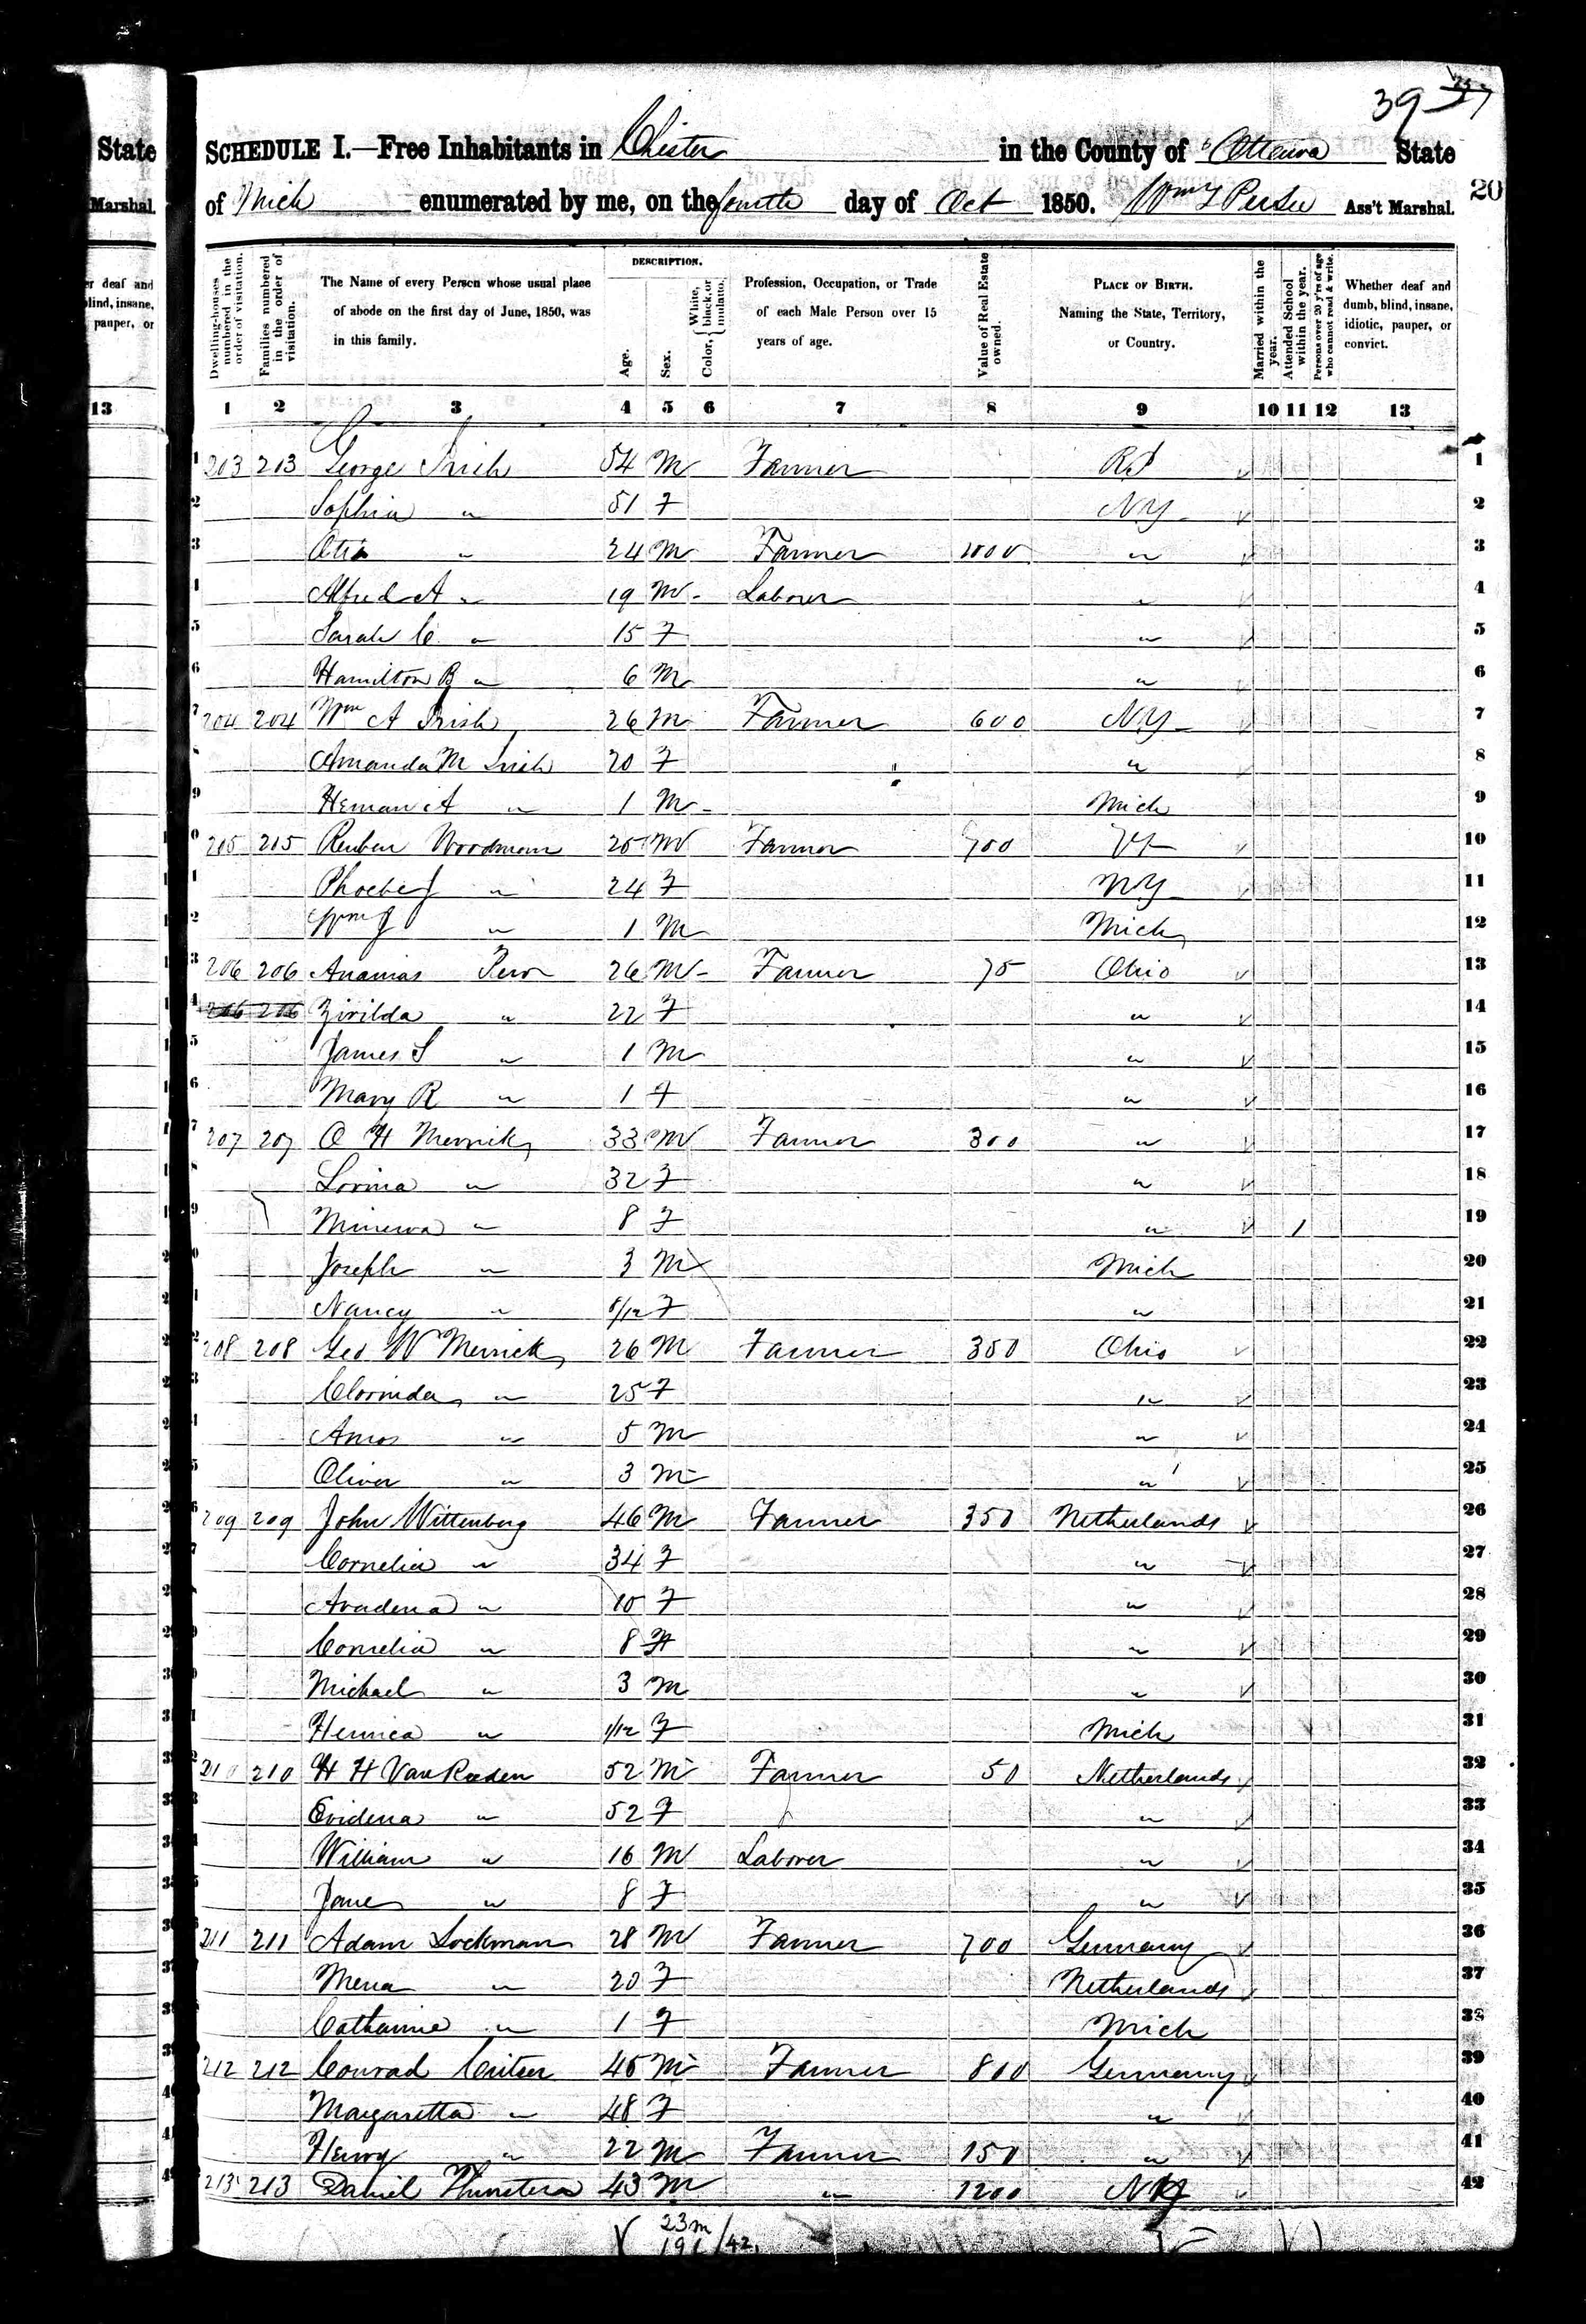 39
SCHEDULE I.—Free Inhabitants in Chester in the County of Ottawa State
of Mich enumerated by me, on the fourth day of Oct 1850. Ass't Marshal. 20
State
Marshal.
er deaf and
blind, insane,
pauper, or
13
DESCRIPTION.
Dwelling-houses numbered in the order of visitation.
Families numbered in the order of visitation.
The Name of every Person whose usual place of abode on the first day of June, 1850, was in this family.
Age.
Sex.
Color, { White, black, or mulatto.
Profession, Occupation, or Trade of each Male Person over 15 years of age.
Value of Real Estate owned.
PLACE OF BIRTH. Naming the State, Territory, or Country.
Married within the year.
Attended School within the year.
Persons over 20 y'rs of age who cannot read & write.
Whether deaf and dumb, blind, insane, idiotic, pauper, or convict.
1 2 3 4 5 6 7 8 9 10 11 12 13
1 213 213 George Irish 54 M Farmer RI 1
2 Sophia " 51 F NY 2
3 Otis " 24 M Farmer 1000 " 3
4 Alfred A " 19 M Laborer " 4
5 Sarah C " 15 F " 5
6 Hamilton B " 6 M " 6
7 204 204 Wm A Irish 26 M Farmer 600 NY 7
Amanda M Irish 20 F " 8
9 Heman A " 1 M Mich 9
10 215 215 Reuben Woodman 25 M Farmer 700 Vt 10
11 Phoebe J " 24 F NY 11
12 Wm J " 1 M Mich 12
13 206 206 Ananias 26 M Farmer 75 Ohio 13
14 206 206 Zirilda " 22 F " 14
15 James S " 1 M " 15
16 Mary R " 1 F " 16
17 207 207 O H Merrick 33 M Farmer 300 " 17
18 Lovina " 32 F " 18
19 Minerva " 8 F " 1 19
20 Joseph " 3 M Mich 20
21 Nancy " 8/12 F " 21
22 208 208 Geo W Merrick 26 M Farmer 350 Ohio 22
23 Clorinda " 25 F " 23
24 Amos " 5 M " 24
25 Oliver " 3 M " 25
26 209 209 John Wittenberg 46 M Farmer 350 Netherlands 26
27 Cornelia " 34 F " 27
28 Aradena " 10 F " 28
29 Cornelia " 8 F " 29
30 Michael " 3 M " 30
31 " 1/12 F Mich 31
32 210 210 H H Van Raden 52 M Farmer 50 Netherlands 32
33 Evidena " 52 F " 33
34 William " 16 M Laborer " 34
35 Jane " 8 F " 35
36 211 211 Adam Lockman 28 M Farmer 700 Germany 36
37 Mena " 20 F Netherlands 37
38 Catharine " 1 F Mich 38
39 212 212 Conrad 45 M Farmer 800 Germany 39
40 Margaretta " 48 F " 40
41 Henry " 22 M Farmer 150 " 41
42 213 213 Daniel 43 M " 1200 NY 42
23 m
19 f /42